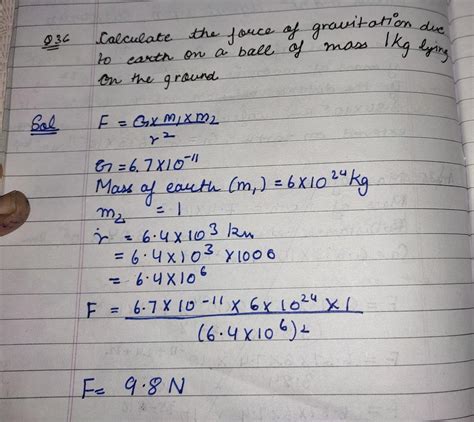 Q36 Calculate the force of gravitation due
to earth on a ball of mass 1kg lying
on the ground
Sol F = G×m₁×m₂
r²
G=6.7×10⁻¹¹
Mass of earth (m₁) = 6×10²⁴kg
m₂ = 1
r = 6.4×10³ km
= 6.4×10³ ×1000
= 6.4×10⁶
F = 6.7×10⁻¹¹ × 6×10²⁴ ×1
(6.4×10⁶)2
F= 9.8N